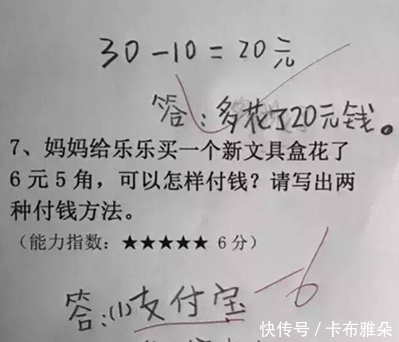 30-10=20元
答:多花了20元钱。
7、妈妈给乐乐买一个新文具盒花了
6元5角,可以怎样付钱?请写出两
种付钱方法。
(能力指数:★★★★★ 6分)
答:(1)支付宝 -6
快传号/卡布雅朵